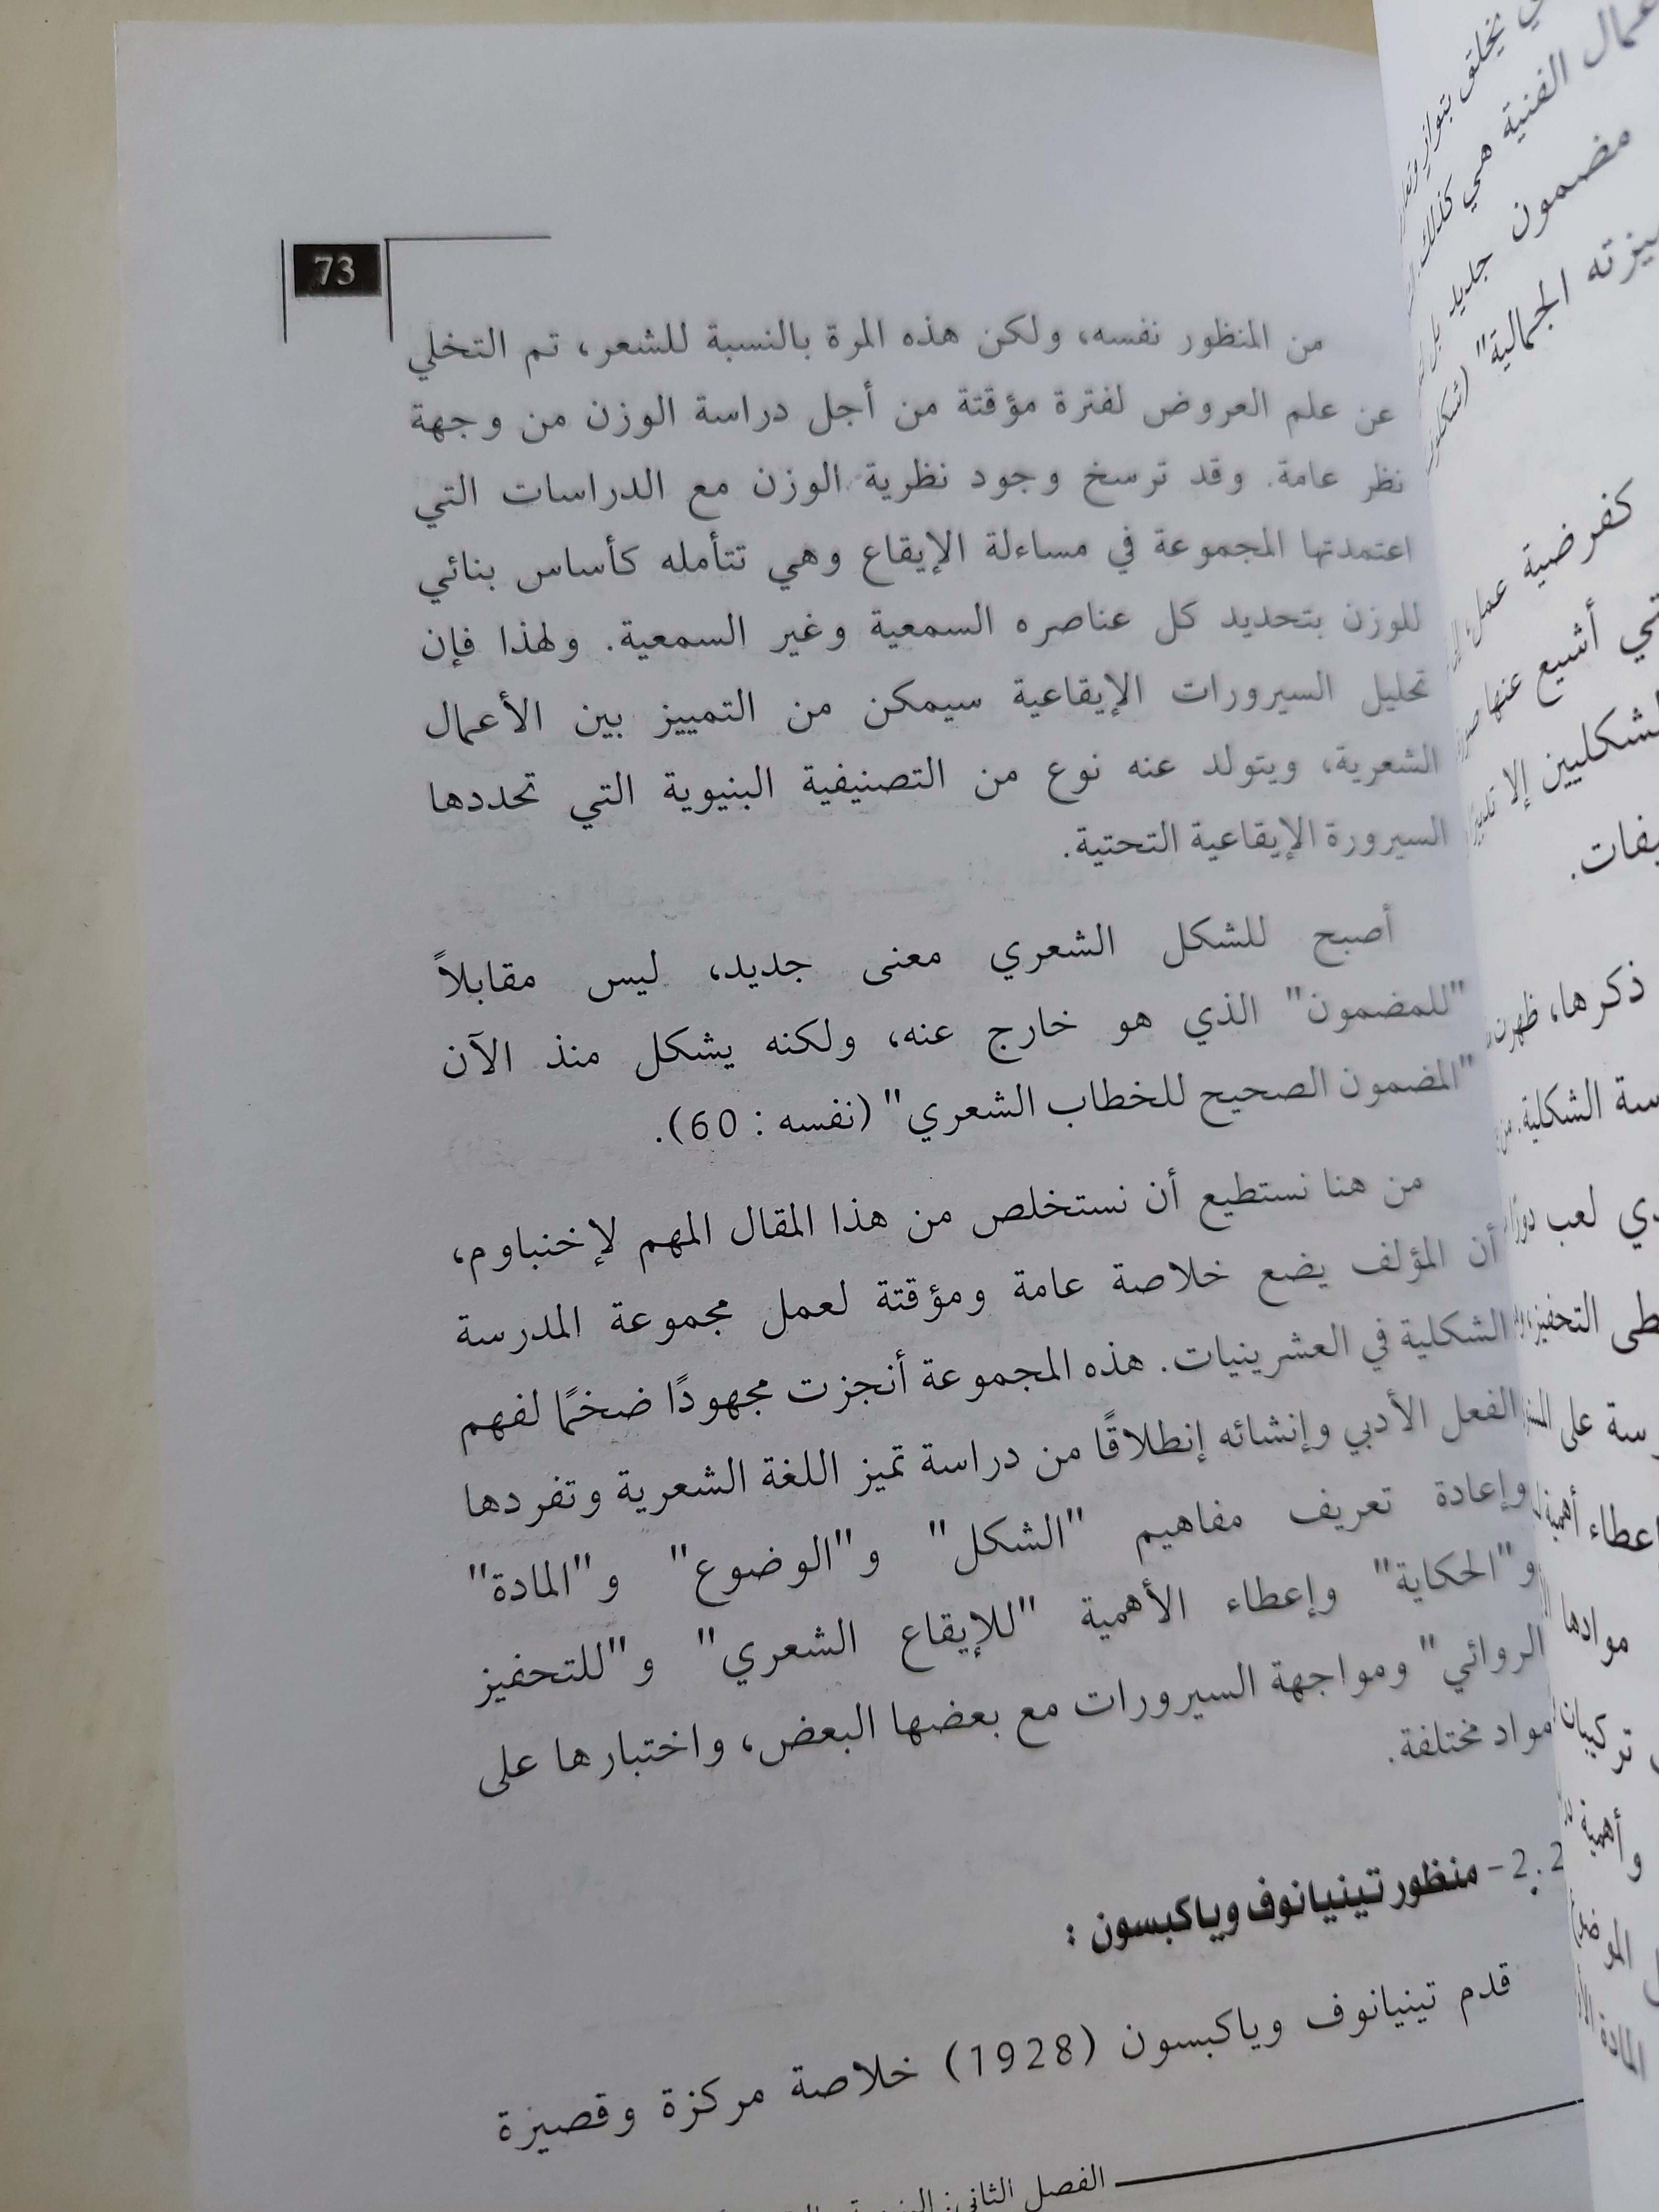 73
من المنظور نفسه، ولكن هذه المرة بالنسبة للشعر، تم التخلي
عن علم العروض لفترة مؤقتة من أجل دراسة الوزن من وجهة
نظر عامة. وقد ترسخ وجود نظرية الوزن مع الدراسات التي
اعتمدتها المجموعة في مساءلة الإيقاع وهي تتأمله كأساس بنائي
للوزن بتحديد كل عناصره السمعية وغير السمعية. ولهذا فإن
تحليل السيرورات الإيقاعية سيمكن من التمييز بين الأعمال
الشعرية، ويتولد عنه نوع من التصنيفية البنيوية التي تحددها
السيرورة الإيقاعية التحتية.
أصبح للشكل الشعري معنى جديد، ليس مقابلاً
"للمضمون" الذي هو خارج عنه، ولكنه يشكل منذ الآن
"المضمون الصحيح للخطاب الشعري" (نفسه : 60).
من هنا نستطيع أن نستخلص من هذا المقال المهم لإخنباوم،
أن المؤلف يضع خلاصة عامة ومؤقتة لعمل مجموعة المدرسة
الشكلية في العشرينيات. هذه المجموعة أنجزت مجهودًا ضخمًا لفهم
الفعل الأدبي وإنشائه إنطلاقًا من دراسة تميز اللغة الشعرية وتفردها
وإعادة تعريف مفاهيم "الشكل" و"الوضوع" و"المادة"
و"الحكاية" وإعطاء الأهمية "للإيقاع الشعري" و"للتحفيز
الروائي" ومواجهة السيرورات مع بعضها البعض، واختبارها على
مواد مختلفة.
2.2- منظور تينيانوف وياكبسون :
قدم تينيانوف وياكبسون (1928) خلاصة مركزة وقصيرة
الفصل الثاني:
يخلق بتواز
الفنية هي كذلك
مضمون جديد بل
الجمالية"
كفرضية عمل
أشيع عنها
إلا
ذكرها، ظهرت
الشكلية. من
لعب دورًا
التحفيز
على
أهمية
موادها
وأهمية